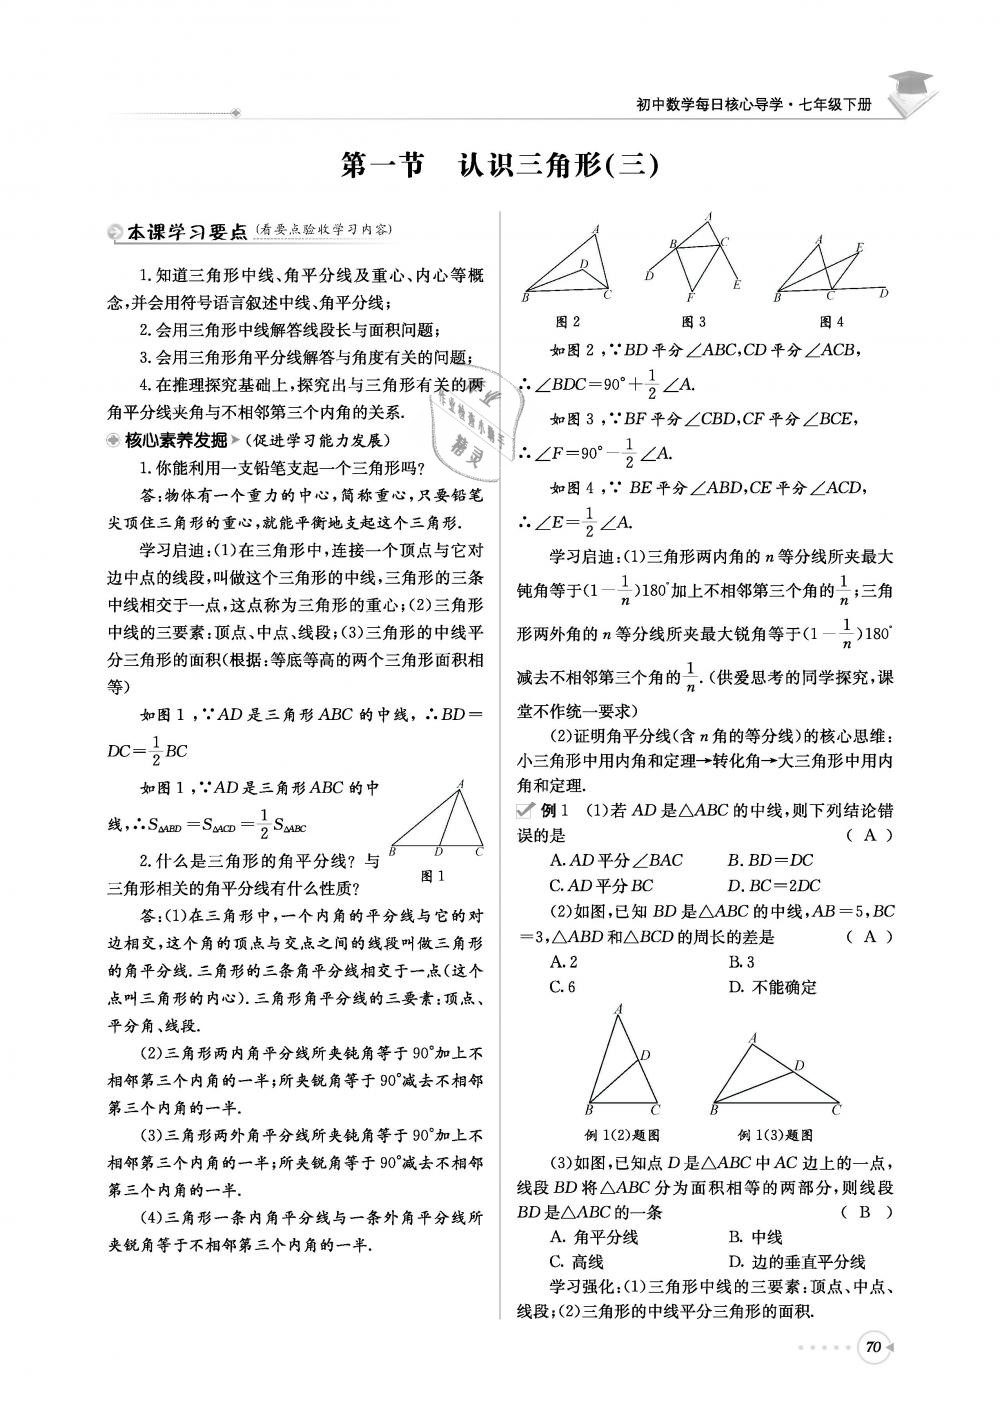 初中数学每日核心导学·七年级下册
第一节 认识三角形(三)
本课学习要点(看要点验收学习内容)
1.知道三角形中线、角平分线及重心、内心等概
念,并会用符号语言叙述中线、角平分线;
2.会用三角形中线解答线段长与面积问题;
3.会用三角形角平分线解答与角度有关的问题;
4.在推理探究基础上,探究出与三角形有关的两
角平分线夹角与不相邻第三个内角的关系.
核心素养发掘(促进学习能力发展)
1.你能利用一支铅笔支起一个三角形吗?
答:物体有一个重力的中心,简称重心,只要铅笔
尖顶住三角形的重心,就能平衡地支起这个三角形.
学习启迪:(1)在三角形中,连接一个顶点与它对
边中点的线段,叫做这个三角形的中线,三角形的三条
中线相交于一点,这点称为三角形的重心;(2)三角形
中线的三要素:顶点、中点、线段;(3)三角形的中线平
分三角形的面积(根据:等底等高的两个三角形面积相
等)
如图1,∵AD是三角形ABC的中线,∴BD=
DC=1/2BC
如图1,∵AD是三角形ABC的中
线,∴S△ABD=S△ACD=1/2S△ABC
A
B D C
图1
2.什么是三角形的角平分线?与
三角形相关的角平分线有什么性质?
答:(1)在三角形中,一个内角的平分线与它的对
边相交,这个角的顶点与交点之间的线段叫做三角形
的角平分线.三角形的三条角平分线相交于一点(这个
点叫三角形的内心).三角形角平分线的三要素:顶点、
平分角、线段.
(2)三角形两内角平分线所夹钝角等于90°加上不
相邻第三个内角的一半;所夹锐角等于90°减去不相邻
第三个内角的一半.
(3)三角形两外角平分线所夹钝角等于90°加上不
相邻第三个内角的一半;所夹锐角等于90°减去不相邻
第三个内角的一半.
(4)三角形一条内角平分线与一条外角平分线所
夹锐角等于不相邻第三个内角的一半.
A D B C
A B C D E F
A E B C D
图2 图3 图4
如图2,∵BD平分∠ABC,CD平分∠ACB,
∴∠BDC=90°+1/2∠A.
如图3,∵BF平分∠CBD,CF平分∠BCE,
∴∠F=90°-1/2∠A.
如图4,∵BE平分∠ABD,CE平分∠ACD,
∴∠E=1/2∠A.
学习启迪:(1)三角形两内角的n等分线所夹最大
钝角等于(1-1/n)180°加上不相邻第三个角的1/n;三角
形两外角的n等分线所夹最大锐角等于(1-1/n)180°
减去不相邻第三个角的1/n.(供爱思考的同学探究,课
堂不作统一要求)
(2)证明角平分线(含n角的等分线)的核心思维:
小三角形中用内角和定理→转化角→大三角形中用内
角和定理.
例1 (1)若AD是△ABC的中线,则下列结论错
误的是 ( A )
A.AD平分∠BAC B.BD=DC
C.AD平分BC D.BC=2DC
(2)如图,已知BD是△ABC的中线,AB=5,BC
=3,△ABD和△BCD的周长的差是 ( A )
A.2 B.3
C.6 D.不能确定
A D B C
A D B C
例1(2)题图 例1(3)题图
(3)如图,已知点D是△ABC中AC边上的一点,
线段BD将△ABC分为面积相等的两部分,则线段
BD是△ABC的一条 ( B )
A.角平分线 B.中线
C.高线 D.边的垂直平分线
学习强化:(1)三角形中线的三要素:顶点、中点、
线段;(2)三角形的中线平分三角形的面积.
70
作业
作业检查小助手
精灵